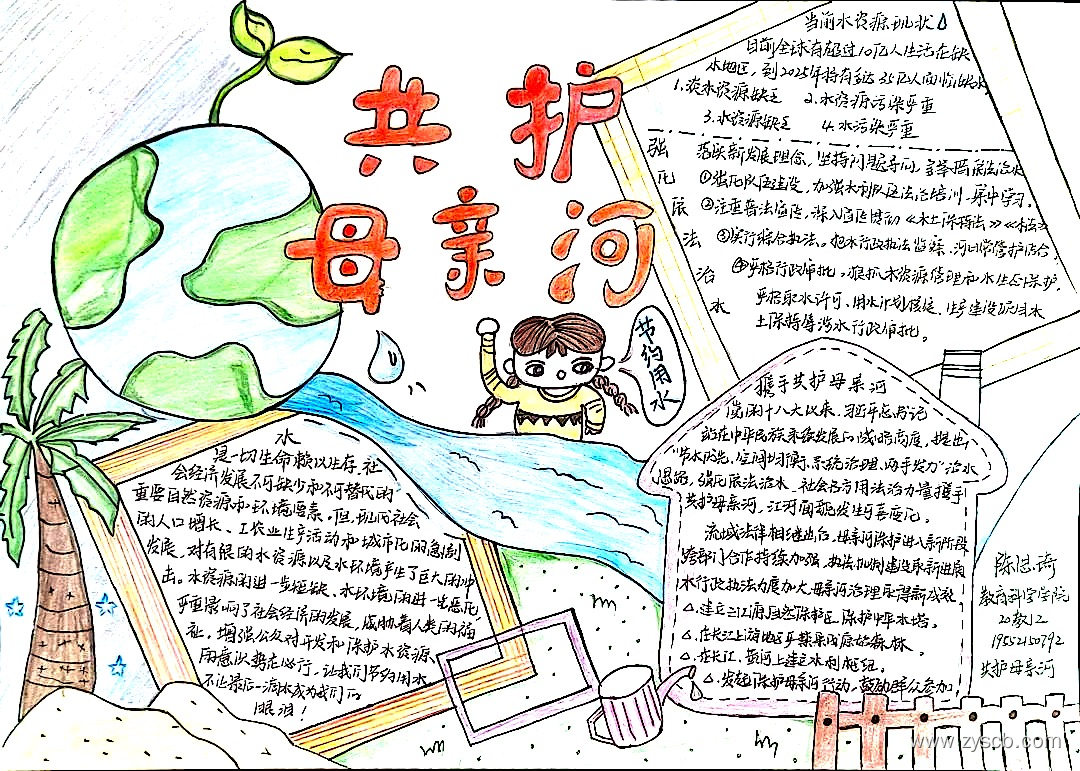 共护
母亲河
节约用水
当前水资源现状
目前全球有超过10亿人生活在缺
水地区，到2025年将有多达35亿人面临缺水
1.淡水资源缺乏 2.水资源污染严重
3.水资源缺乏 4.水污染严重
强化依法治水
落实新发展理念，坚持问题导向，
①强化队伍建设，加强水利队伍法治培训，集中学习。
②注重普法宣传，深入宣传贯彻《水土保持法》《水法》
③实行综合执法。把水行政执法监察、河日常管护结合，
④严格行政审批。狠抓水资源管理和水生态保护，
严格取水许可、用水计划核定、生产建设项目水
土保持等涉水行政审批。
携手共护母亲河
党的十八大以来，习近平总书记
站在中华民族永续发展的战略高度，提出
“节水优先、空间均衡、系统治理、两手发力”治水
思路，强化依法治水，社会各方用法治力量携手
共护母亲河，江河面貌发生可喜变化。
流域法律相继出台，母亲河保护进入新阶段
跨部门合作持续加强，执法机制建设取得新进展
水行政执法力度加大，母亲河治理取得新成效
△.建立三江源自然保护区，保护中华水塔。
△.在长江上游地区开禁采伐原始森林。
△.在长江、黄河上建立水利枢纽。
△.发起保护母亲河行动，鼓励群众参加，
水
是一切生命赖以生存，社
会经济发展不可缺少和不可替代的
重要自然资源和环境要素。但，现代社会
的人口增长、工农业生产活动和城市化的急剧
发展，对有限的水资源以及水环境产生了巨大的冲
击。水资源的进一步短缺、水环境的进一步恶化
严重影响了社会经济的发展，威胁着人类的福
祉，增强公众对开发和保护水资源
的意识势在必行，让我们节约用水
不让最后一滴水成为我们的
眼泪！
陈思琦
教育科学学院
20教12
19552150792
共护母亲河
www.zyscb.com